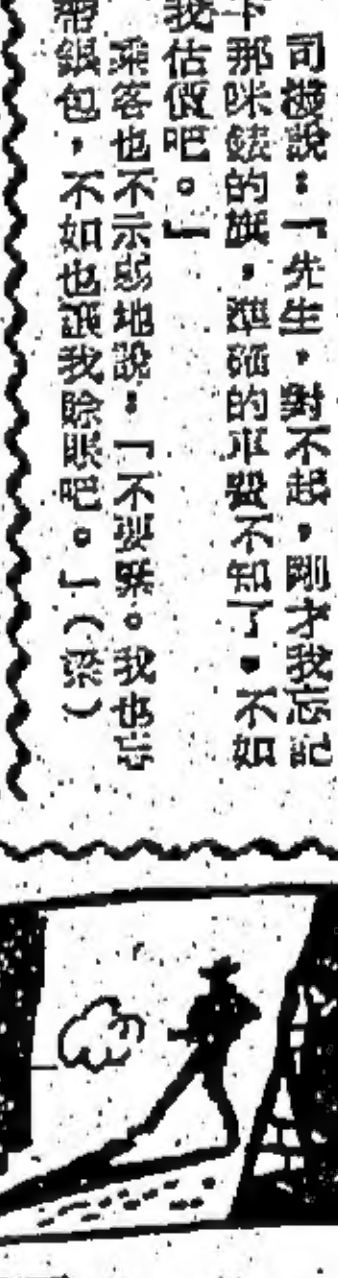 司機說：「先生，對不起，剛才我忘記
下那咪錶的旗，準確的車費不知了。不如
我估價吧。」
乘客也不示弱地說：「不要緊。我也忘
帶銀包，不如也讓我賒賬吧。」（梁）